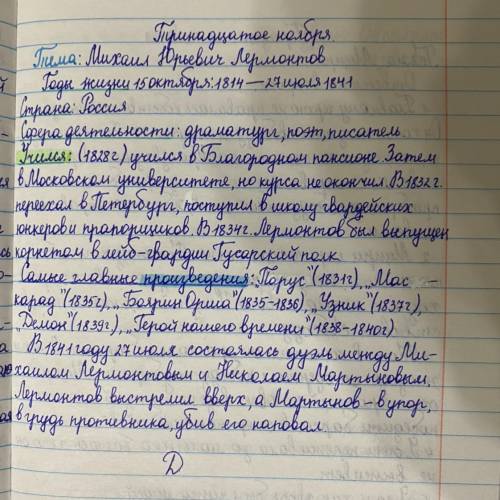 Тринадцатое ноября
Тема: Михаил Юрьевич Лермонтов
Годы жизни 15 октября:1814—27 июля 1841
Страна: Россия
Сфера деятельности: драматург, поэт, писатель.
Учился: (1828г) учился в Благородном пансионе. Затем
в Московском университете, но курса не окончил. В 1832г.
переехал в Петербург, поступил в школу гвардейских
юнкеров и прапорщиков. В 1834г. Лермонтов был выпущен
корнетом в лейб-гвардии Гусарский полк.
Самые главные произведения: „Парус"(1831г), „Мас -
карад"(1835г), „Боярин Орша"(1835-1836), „Узник"(1837г),
„Демон"(1839г), „Герой нашего времени"(1838-1840г)
В 1841 году 27 июля состоялась дуэль между Ми-
хаилом Лермонтовым и Николаем Мартыновым.
Лермонтов выстрелил вверх, а Мартынов - в упор,
в грудь противника, убив его наповал.
Д